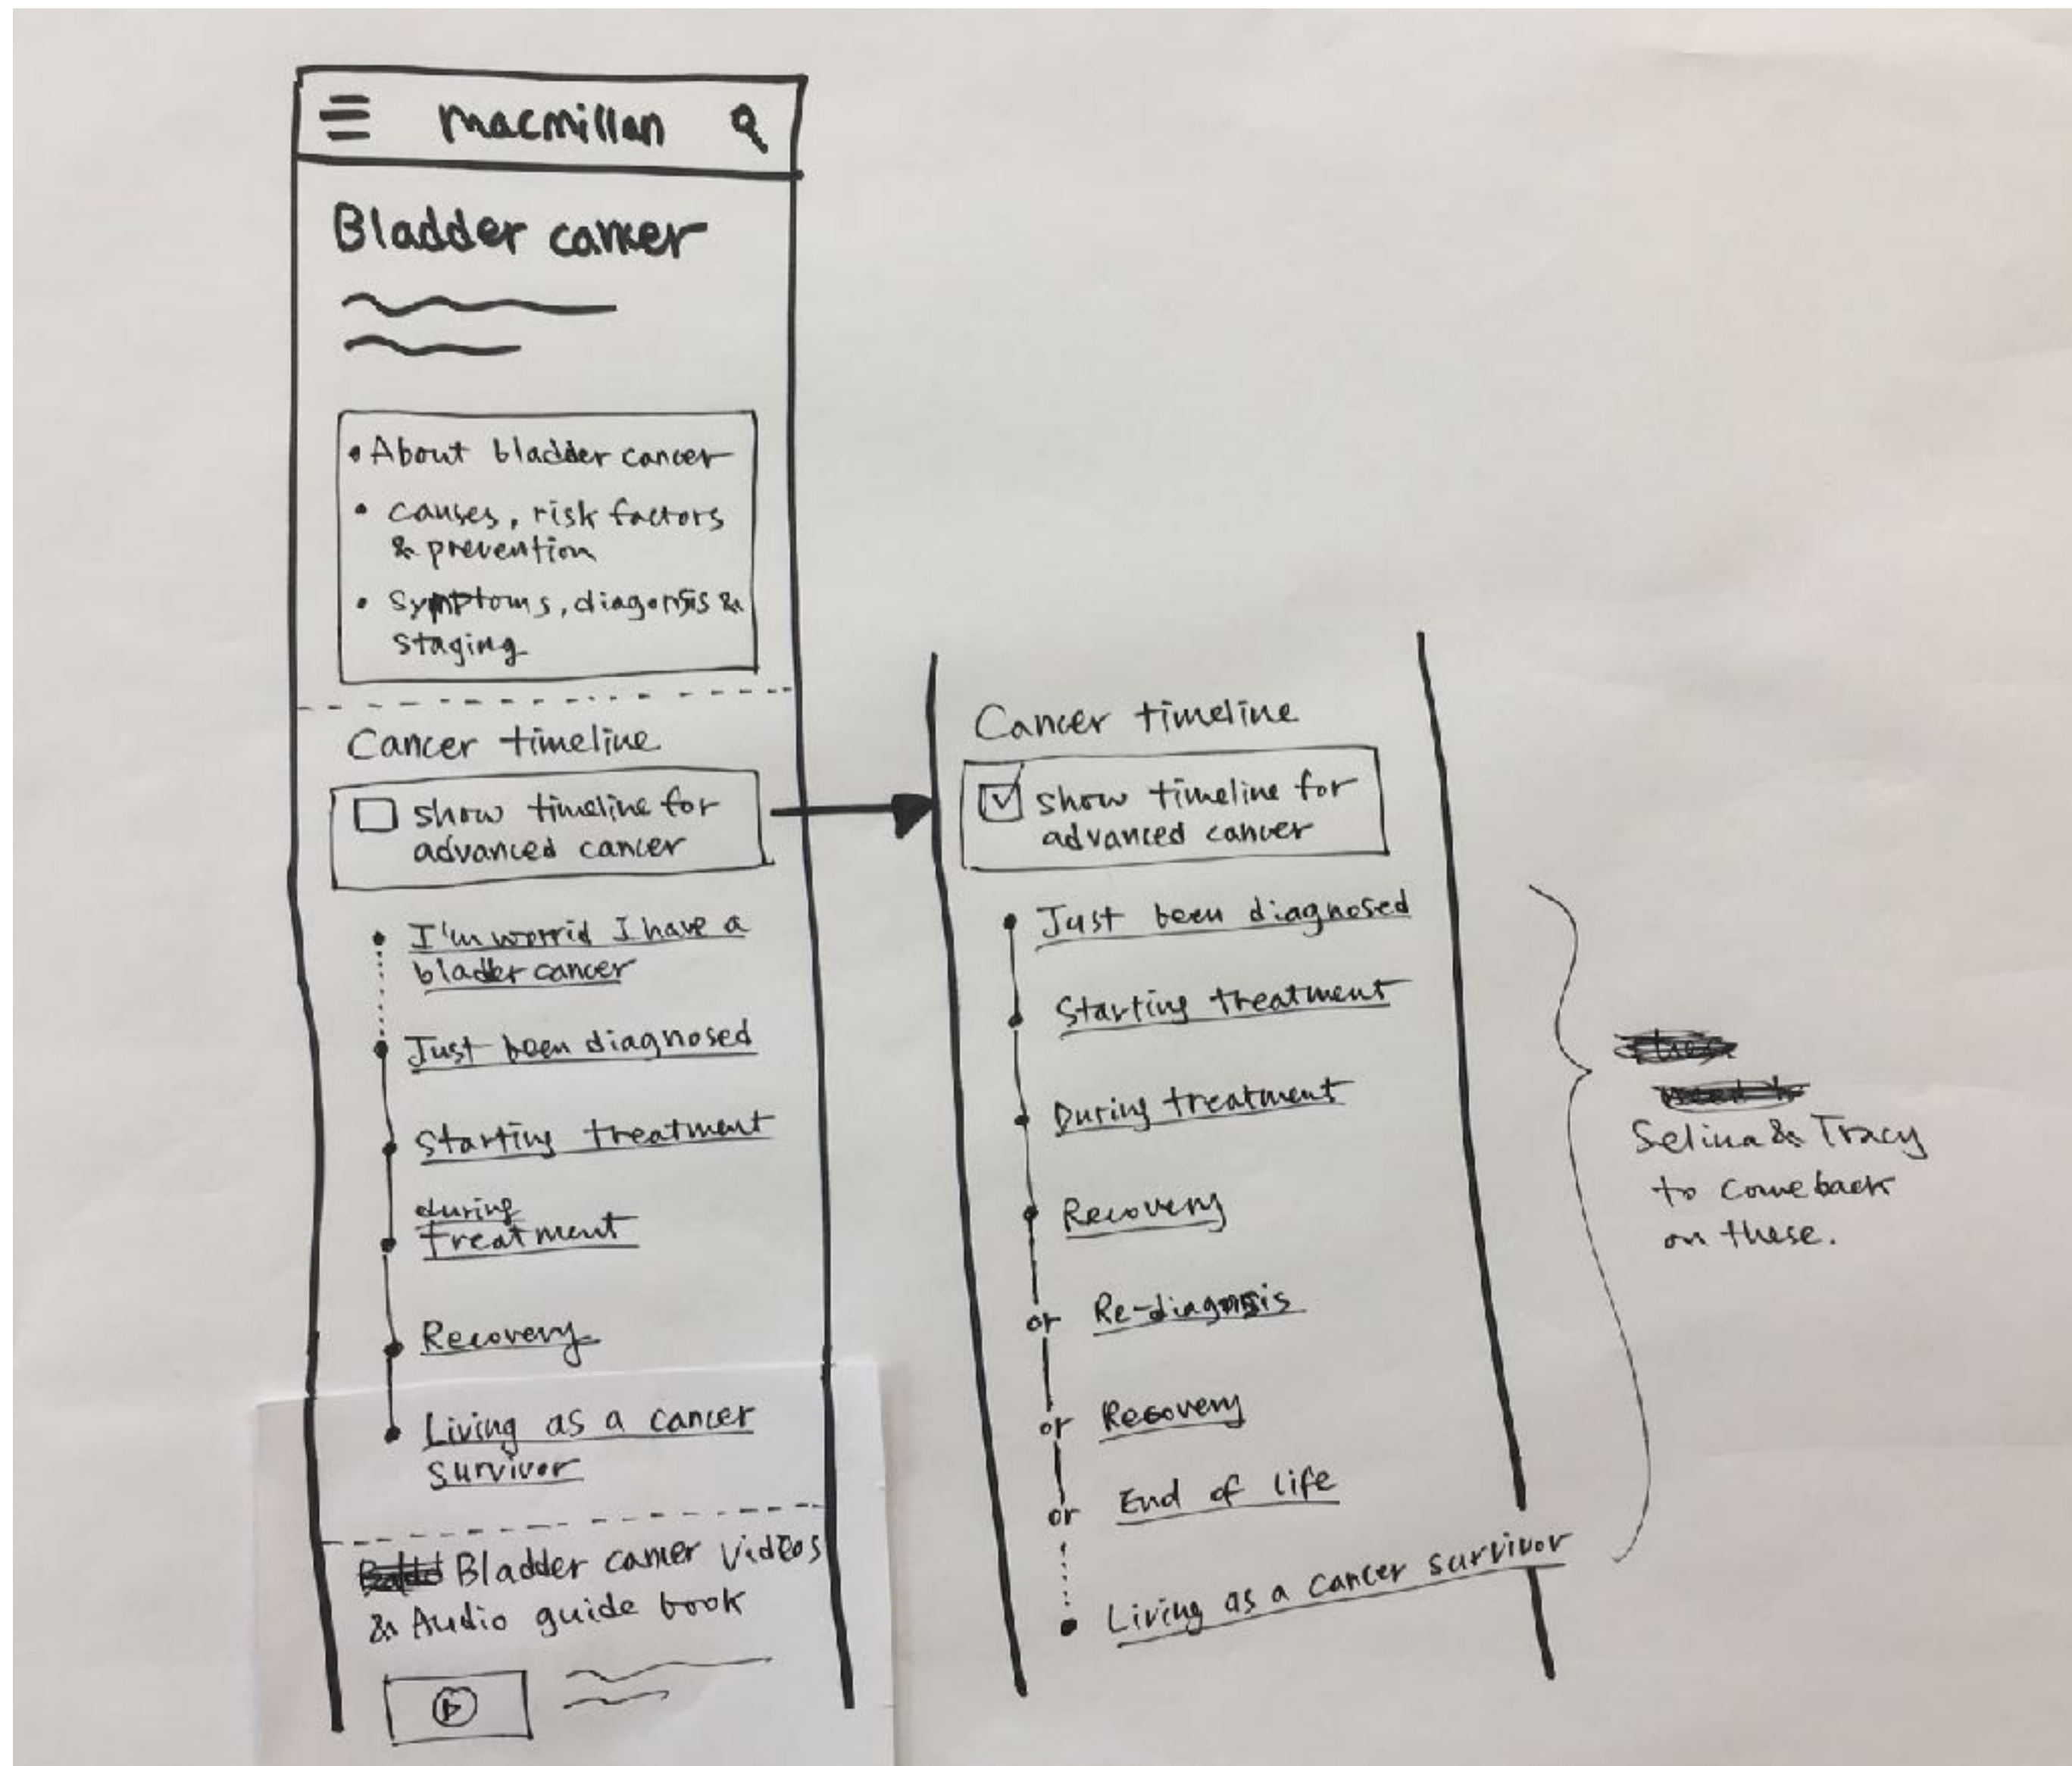 macmillan
Bladder cancer
• About bladder cancer
• causes, risk factors
& prevention
• Symptoms, diagonsis &
staging
Cancer timeline
show timeline for
advanced cancer
I'm worrid I have a
bladder cancer
Just been diagnosed
Starting treatment
during
treatment
Recovery
Living as a cancer
survivor
Bladder cancer videos
& Audio guide book
Cancer timeline
show timeline for
advanced cancer
Just been diagnosed
Starting treatment
During treatment
Recovery
or Re-diagnosis
or Recovery
or End of life
Living as a cancer survivor
Selina & Tracy
to come back
on these.